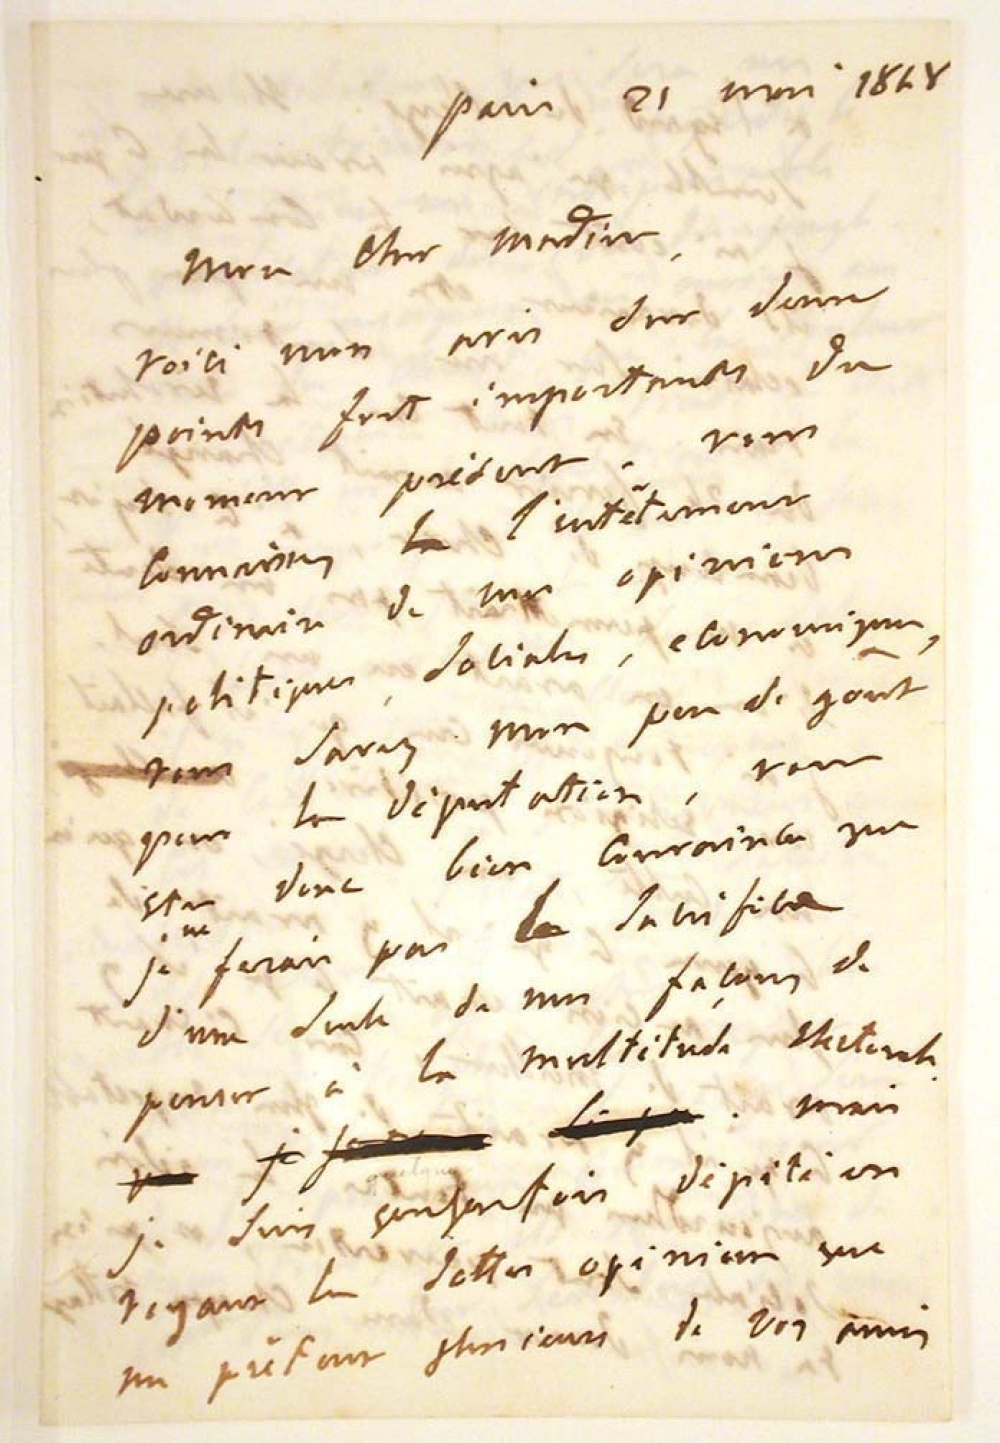 Paris 21 mai 1868
Mon cher Madier,
voici mon avis sur deux
points fort importants du
moment présent. vous
connaissez la l'entêtement
ordinaire de mes opinions
politiques, sociales, economiques,
vous savez mon peu de goût
pour la députation, vous
etes donc bien convaincu que
je ne ferais pas le sacrifice
d'une seule de mes façons de
penser à la multitude électorale.
je mais
je suis quelquefois dépité en
voyant les sottes opinions que
me prêtent plusieurs de vos amis